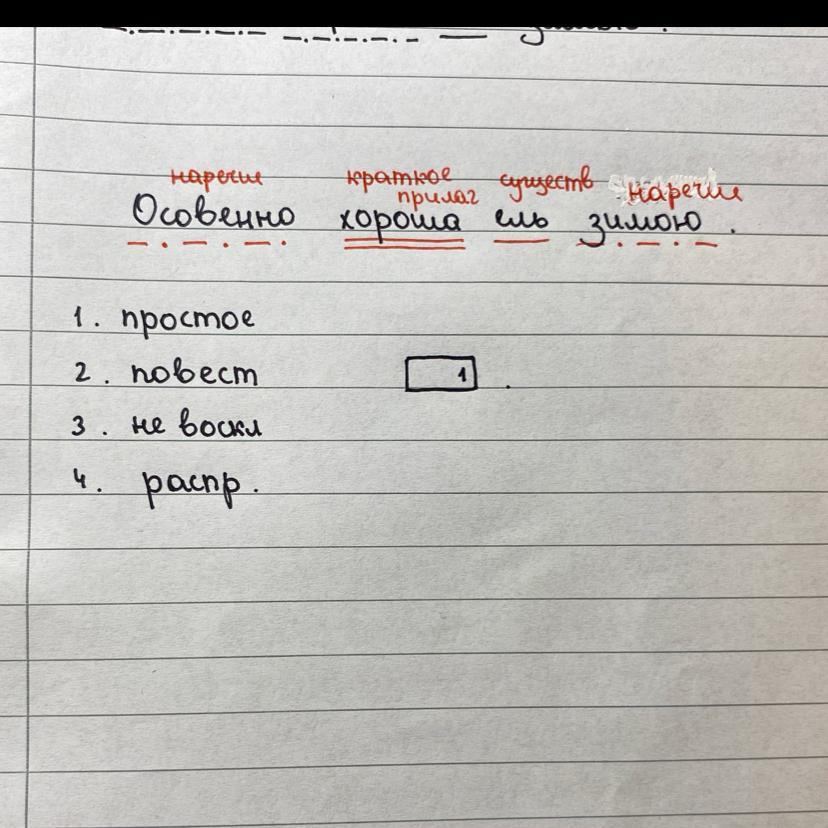 наречие краткое существ наречие
прилаг
Особенно хороша ель зимою .
1. простое
2. повест 1 .
3. не воскл
4. распр.